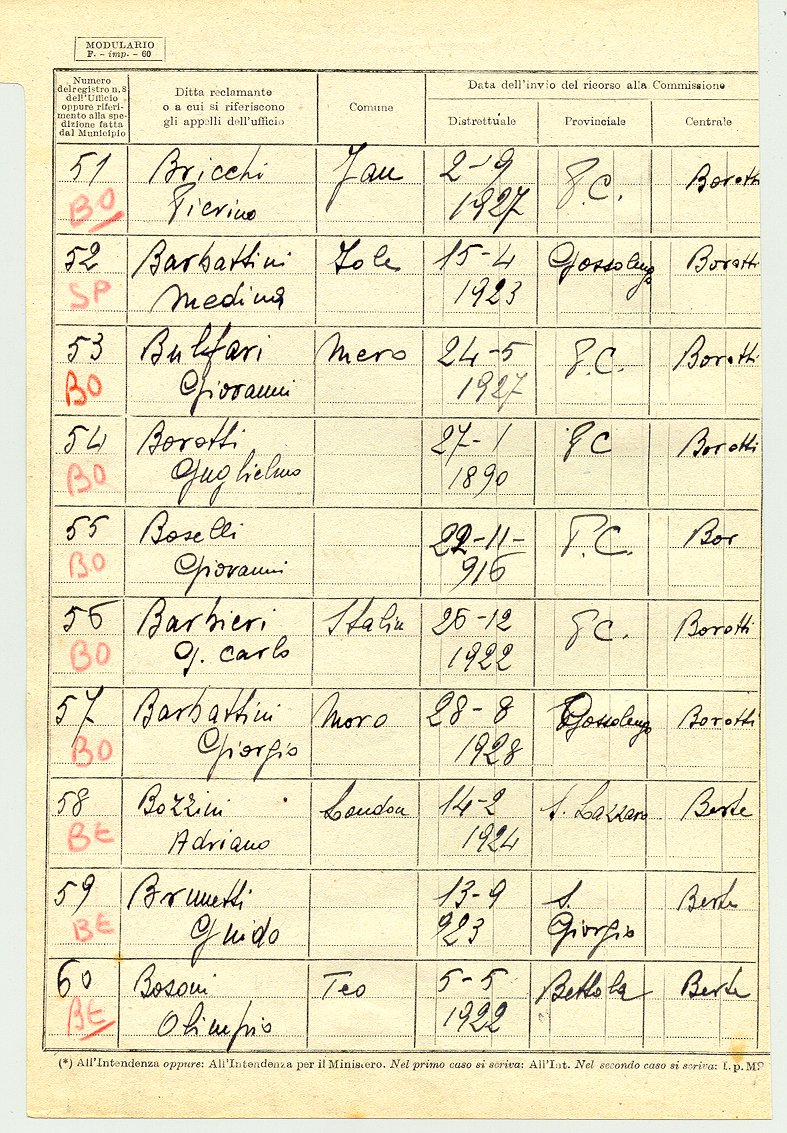 MODULARIO
F. - imp. - 60
Numero
del registro n. 8
dell'Ufficio
oppure riferi-
mento alla spe-
dizione fatta
dal Municipio
Ditta reclamante
o a cui si riferiscono
gli appelli dell'ufficio
Comune
Data dell'invio del ricorso alla Commissione
Distrettuale Provinciale Centrale
51 Bricchi Jan 2-9 P.C. Borotti
BO Pierino 1927
52 Barbattini Jole 15-4 Gossolengo Borotti
SP Medina 1923
53 Giovanni Mero 24-5 P.C. Borotti
BO 1927
54 Borotti 27-1 P C Borotti
BO Guglielmo 1890
55 Boselli 22-11- P.C. Bor
BO Giovanni 916
56 Barbieri Stalin 26-12 P C. Borotti
BO G. Carlo 1922
57 Barbattini Moro 28-8 Gossolengo Borotti
BO Giorgio 1928
58 Bozzini London 14-2 S. Lazzaro Berte
BE Adriano 1924
59 Brunetti 13-9 S. Berte
BE Guido 923 Giorgio
60 Bosoni Teo 5-5 Bettola Berte
BE Olimpio 1922
(*) All'Intendenza oppure: All'Intendenza per il Ministero. Nel primo caso si scriva: All'Int. Nel secondo caso si scriva: I. p. M